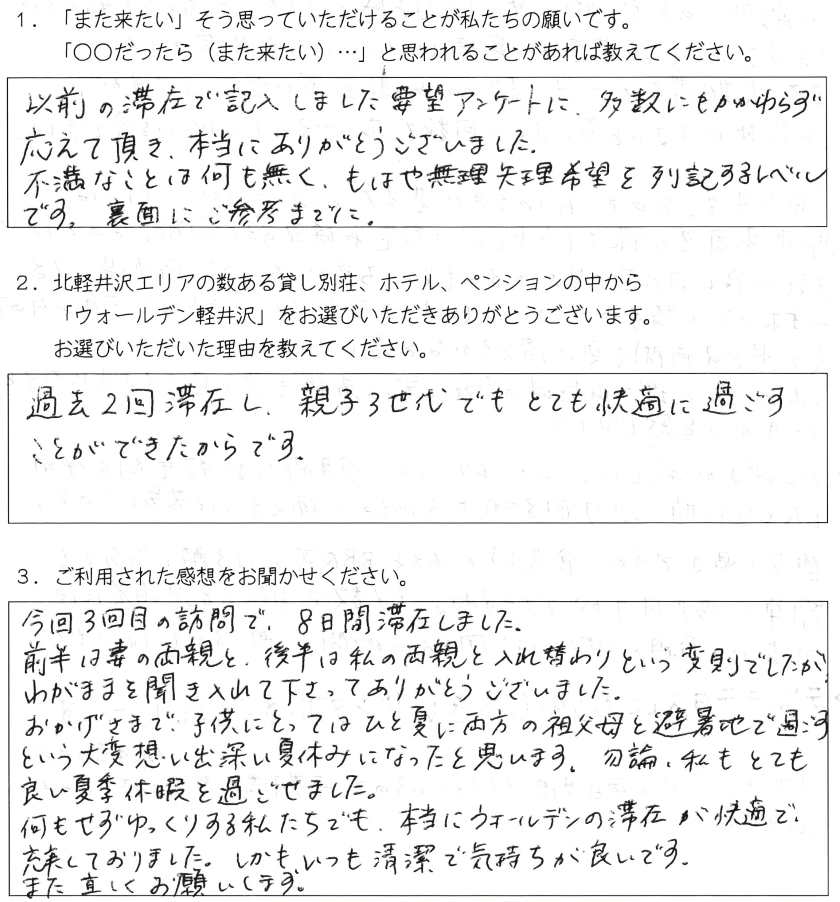 1．「また来たい」そう思っていただけることが私たちの願いです。
「〇〇だったら（また来たい）…」と思われることがあれば教えてください。
以前の滞在で記入しました要望アンケートに、多数にもかかわらず
応えて頂き、本当にありがとうございました。
不満なことは何も無く、もはや無理矢理希望を列記するレベル
です。裏面にご参考までに。
2．北軽井沢エリアの数ある貸し別荘、ホテル、ペンションの中から
「ウォールデン軽井沢」をお選びいただきありがとうございます。
お選びいただいた理由を教えてください。
過去2回滞在し、親子3世代でもとても快適に過ごす
ことができたからです。
3．ご利用された感想をお聞かせください。
今回3回目の訪問で、8日間滞在しました。
前半は妻の両親と、後半は私の両親と入れ替わりという変則でしたが
わがままを聞き入れて下さってありがとうございました。
おかげさまで、子供にとってはひと夏に両方の祖父母と避暑地で過ごす
という大変想い出深い夏休みになったと思います。勿論、私もとても
良い夏季休暇を過ごせました。
何もせずゆっくりする私たちでも、本当にウォールデンの滞在が快適で、
充実しておりました。しかも、いつも清潔で気持ちが良いです。
また宜しくお願いします。